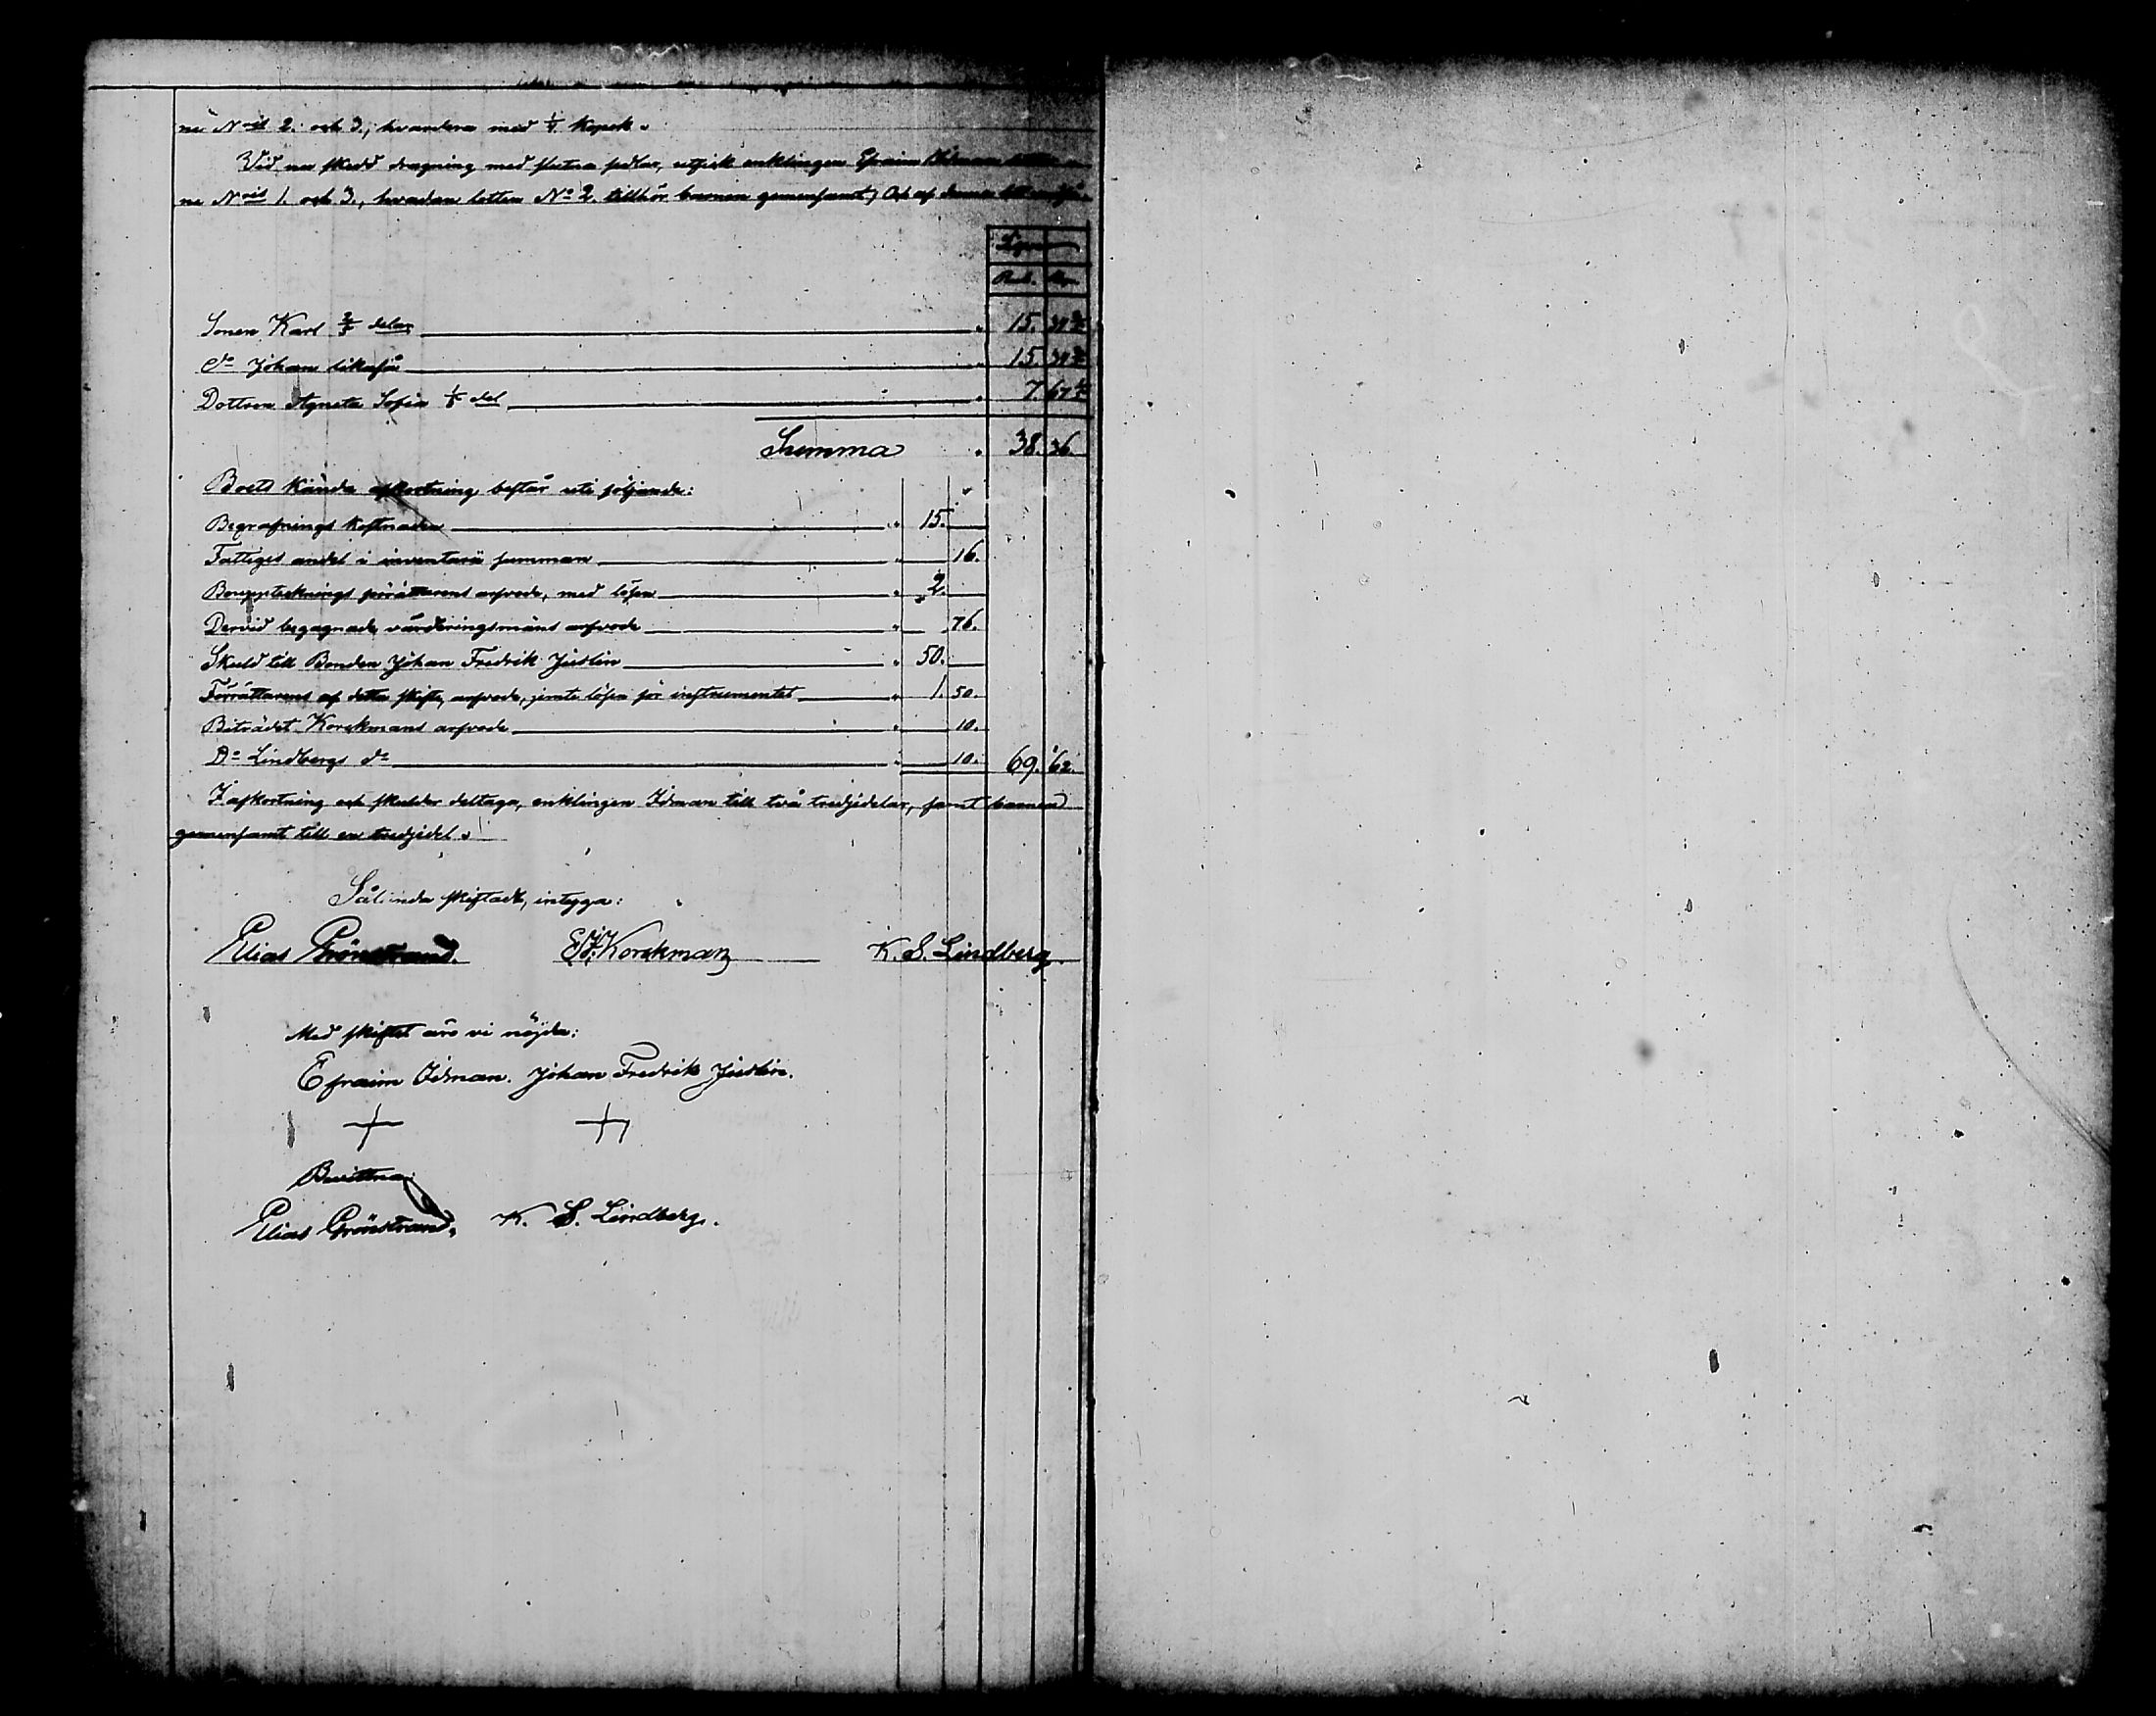 ne N:ris 2. och 3., hvardera med ¼ kopek.
Vid nu skedd dragning med slutna sedlar, utfick enklingen Efraim Idman lotter-
ne N:ris 1. och 3., hvadan lotten No 2. tillhör barnen gemensamt; Och af denna
Rub. Kop.
Sonen Karl 2/5 delar 15. 34 2/5
do Johan likaså 15. 34 2/5
Dottren Agneta Sofia 1/5 del 7. 67 1/5
Summa 38. 36.
Boets kända afkortning består uti följande:
Begrafnings kostnaden 15.
Fattiges andel i inventarii summan 16.
Bouppteknings förrättarens arfvode, med lösen 2.
Dervid begagnade värderingsmäns arfvode 76.
Skuld till Bonden Johan Fredrik Juslin 50.
Förrättarens af detta skifte, arfvode, jemte lösen för instrumentet 1. 50.
Biträdet Korckmans arfvode 10.
Do Lindbergs do 10. 69. 62.
I afkortning och skulder deltaga, enklingen Idman till två tredjedelar, samt barnen
gemensamt till en tredjedel.
Sålunda skiftadt, intyga:
Elias Grönstrand. E. J. Korckman K. S. Lindberg.
Med skiftet äro vi nöjda:
Efraim Idman. Johan Fredrik Juslin.
Bevittna:
Elias Grönstrand. K. S. Lindberg.